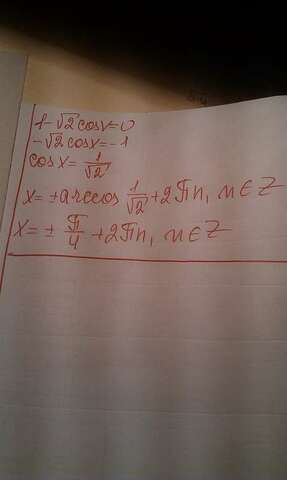 1-√2 cosx=0
-√2 cosx=-1
cosx= 1/√2
x= ±arccos 1/√2 +2πn, n∈Z
x= ± π/4 +2πn, n∈Z